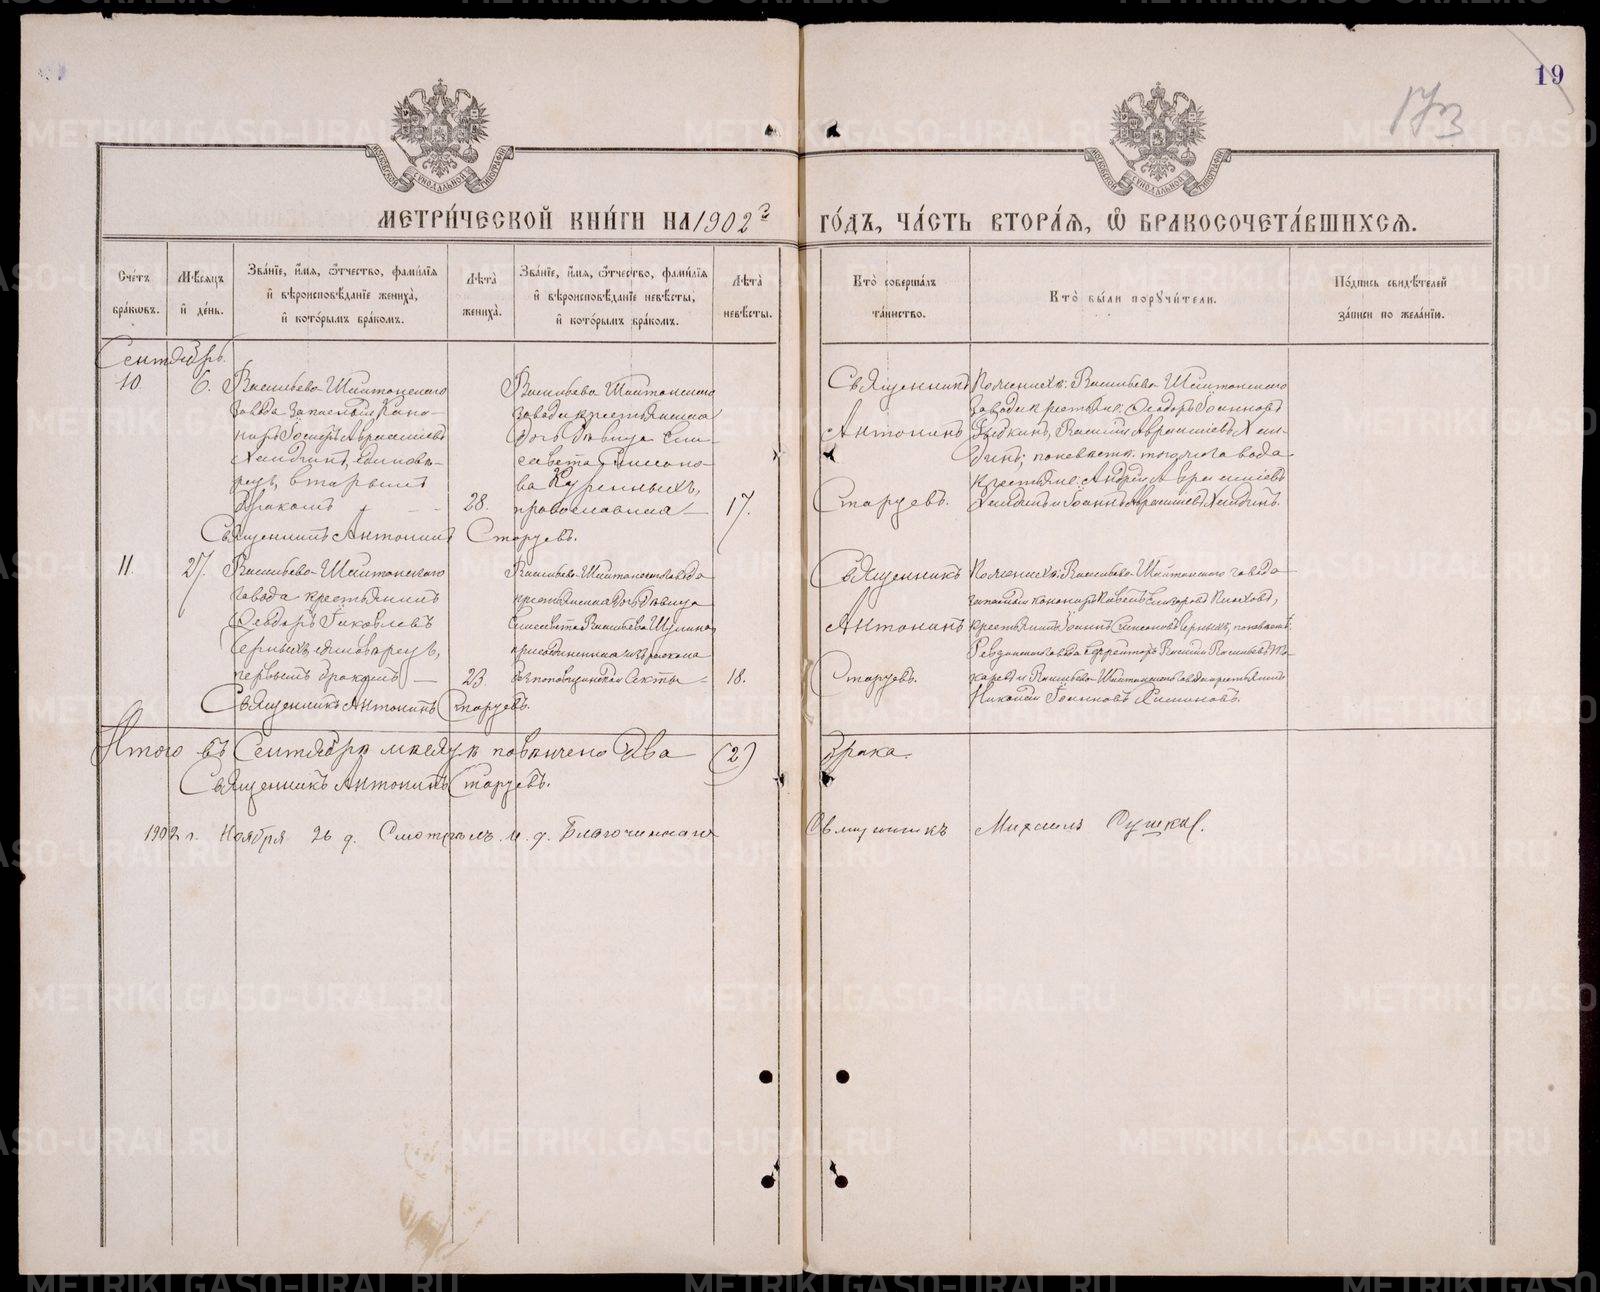 19
173
МЕТРИ́ЧЕСКОЙ КНИ́ГИ НА 1902 й
ГО́ДЪ, ЧА́СТЬ ВТОРА́Я, Ѽ БРАКОСОЧЕТА́ВШИХСѦ.
Сче́тъ бра́кωвъ.
Мѣ́сяцъ и҆ де́нь.
Зва́нїе, и҆́мя, ѻ҆́тчество, фами́лїя и҆ вѣроисповѣ́данїе жениха̀, и҆ кото́рымъ бра́комъ.
Лѣ́та̀ жениха̀.
Зва́нїе, и҆́мя, ѻ҆́тчество, фами́лїя и҆ вѣроисповѣ́данїе невѣ́сты, и҆ кото́рымъ бра́комъ.
Лѣ́та̀ невѣ́сты.
Кто̀ соверша́лъ та́инство.
Кто̀ бы́ли порꙋчи́тели.
По́дпись свидѣ́телей за́писи по жела́нїю.
Сентябрь.
10.
6.
Васильево-Шайтанскаго
завода запасный Кано-
ниръ Іосифъ Аврамiевъ
единовѣ-
рецъ, вторымъ
бракомъ
28.
Васильево-Шайтанскаго
завода крестьянина
дочь дѣвица Ели-
савета
православная
17.
Священникъ
Антонинъ
Старцевъ.
По женихѣ: Васильево-Шайтанскаго
завода крестьяне: Ѳеодоръ Іоанновъ
Василій Аврамiевъ
по невѣстѣ: тогоже завода
крестьяне: Андрей Аврамiевъ
Священникъ Антонинъ Старцевъ.
11.
27.
Васильево-Шайтанскаго
завода крестьянинъ
Ѳеодоръ Іаковлевъ
Черныхъ, единовѣрецъ,
первымъ бракомъ
23.
Васильево-Шайтанскаго завода
крестьянина дочь дѣвица
Елисавета Васильева
присоединенная изъ раскола
безпоповщинской секты
18.
Священникъ
Антонинъ
Старцевъ.
По женихѣ: Васильево-Шайтанского завода
запасный канониръ Павелъ
крестьянинъ Іоаннъ Симеоновъ Черныхъ, по невѣстѣ:
Ревдинскаго завода Василій Васильевъ
и Васильево-Шайтанскаго завода крестьянинъ
Николай Іоанновъ
Священникъ Антонинъ Старцевъ.
Итого въ Сентябрѣ мѣсяцѣ повѣнчено два (2) брака.
Священникъ Антонинъ Старцевъ.
1902 г. Ноября 26 д. Смотрѣлъ. и. д. Благочиннаго Священникъ Михаилъ
METRIKI.GASO-URAL.RU